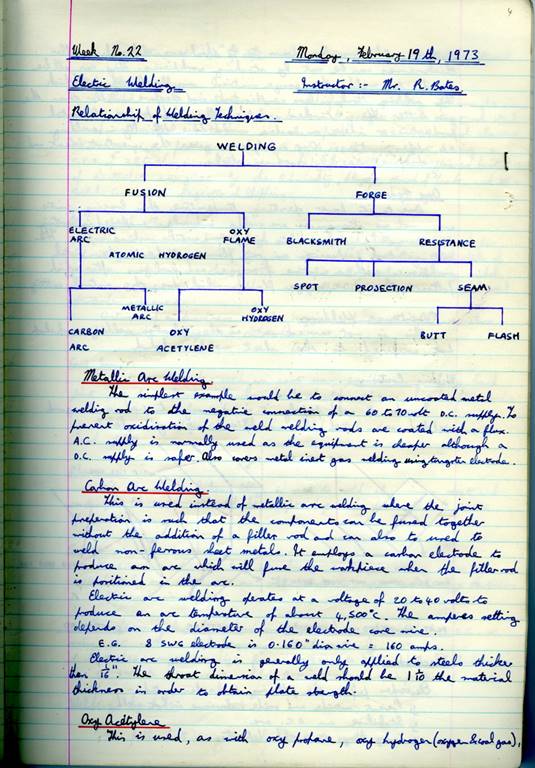 Week No. 22
Monday, February 19th, 1973
Electric Welding
Instructor :- Mr. R. Bates.
Relationship of Welding Techniques.
WELDING
FUSION FORGE
ELECTRIC ARC OXY FLAME BLACKSMITH RESISTANCE
ATOMIC HYDROGEN
SPOT PROJECTION SEAM
METALLIC ARC OXY HYDROGEN
CARBON ARC OXY ACETYLENE BUTT FLASH
Metallic Arc Welding
The simplest example would be to connect an uncoated metal
welding rod to the negative connection of a 60 to 70 volt D.C. supply. To
prevent oxidisation of the weld welding rods are coated with a flux.
A.C. supply is normally used as the equipment is cheaper although a
D.C. supply is safer. Also covers metal inert gas welding using tungsten electrode.
Carbon Arc Welding
This is used instead of metallic arc welding where the joint
preparation is such that the components can be fused together
without the addition of a filler rod and can also be used to
weld non-ferrous sheet metals. It employs a carbon electrode to
produce an arc which will fuse the workpiece when the filler rod
is positioned in the arc.
Electric arc welding operates at a voltage of 20 to 40 volts to
produce an arc temperature of about 4,500°C. The amperes setting
depends on the diameter of the electrode core wire.
E.G. 8 SWG electrode is 0.160" dia wire = 160 amps.
Electric arc welding is generally only applied to steels thicker
than 1/16". The throat dimension of a weld should be 1 to the material
thickness in order to obtain plate strength.
Oxy Acetylene
This is used, as with oxy propane, oxy hydrogen (oxygen & coal gas),